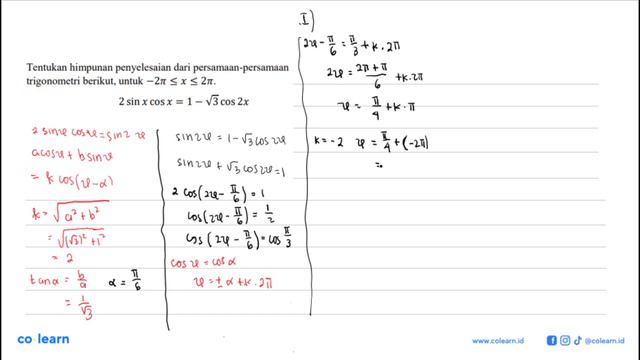 Tentukan himpunan penyelesaian dari persamaan-persamaan
trigonometri berikut, untuk −2π ≤ x ≤ 2π.
2 sin x cos x = 1 − √3 cos 2x
2 sin x cos x = sin 2x
a cos x + b sin x
= k cos(x−α)
k = √(a² + b²)
= √((√3)² + 1²)
= 2
tan α = b/a α = π/6
= 1/√3
sin 2x = 1 − √3 cos 2x
sin 2x + √3 cos 2x = 1
2 cos(2x − π/6) = 1
cos(2x − π/6) = 1/2
cos(2x − π/6) = cos π/3
cos x = cos α
x = ± α + k . 2π
I)
2x − π/6 = π/3 + k . 2π
2x = (2π + π)/6 + k . 2π
x = π/4 + k . π
k = −2 x = π/4 + (−2π)
=
co learn
www.colearn.id
@colearn.id